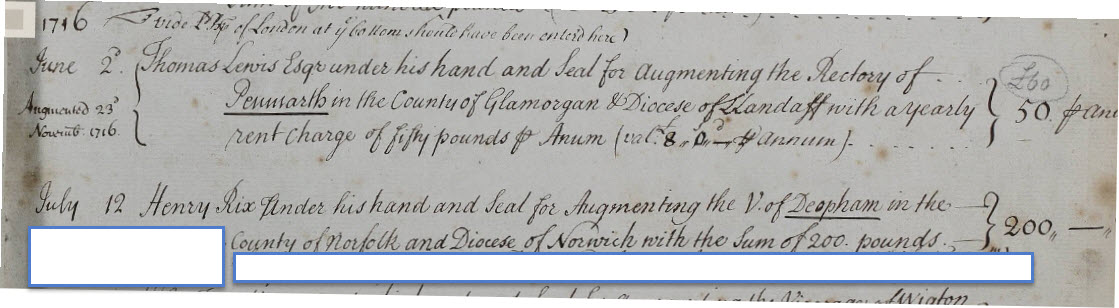 1716 vide Bp of London at ye bottom should have been enterd here)
June 2d. Thomas Lewis Esqr under his hand and Seal for Augmenting the Rectory of
Augmented 23d Novemb. 1716. Pennarth in the County of Glamorgan & Diocese of Llandaff with a yearly 50. ₱ an
rent Charge of fifty pounds ₱ Anum (val. 8 ₱ annum).
£60
July 12 Henry Rix Under his hand and Seal for Augmenting the V. of Deopham in the
County of Norfolk and Diocese of Norwich with the Sum of 200. pounds. 200,, — ,,
the Vicarage of Wigton